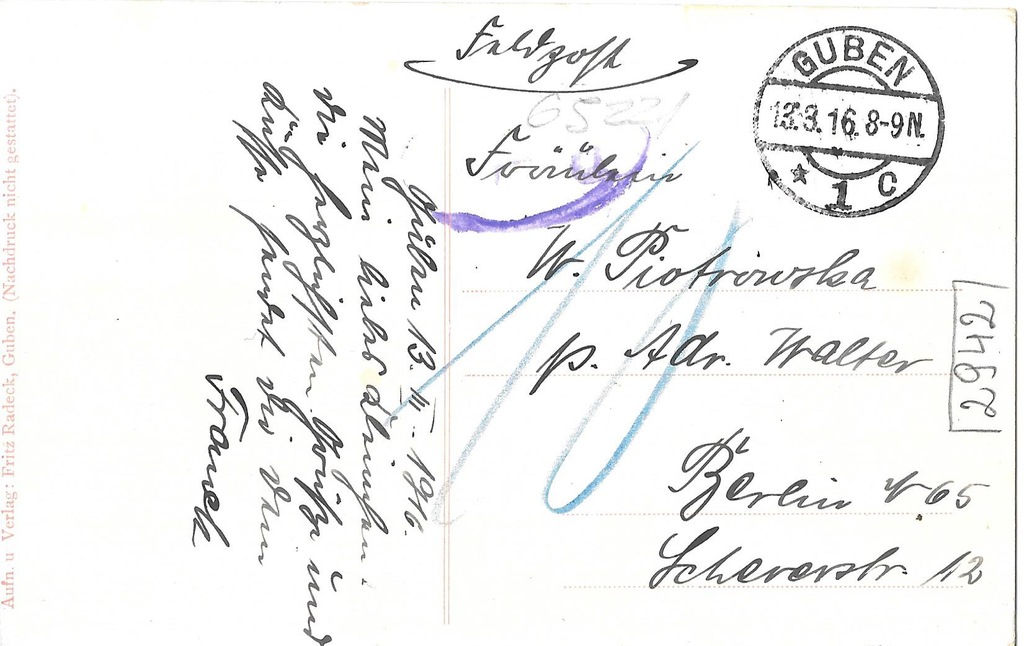 Feldpost
GUBEN
13.3.16.8-9N.
* 1 C
6522
Fräulein
W. Piotrowska
p. Adr. Walter
Berlin N 65
Schererstr. 12
2942
10
Guben 13. III. 1916.
Mein liebes
die herzlichsten Grüße und
Küsse sendet Dir Dein
Franek
Aufn. u Verlag: Fritz Radeck, Guben. (Nachdruck nicht gestattet).